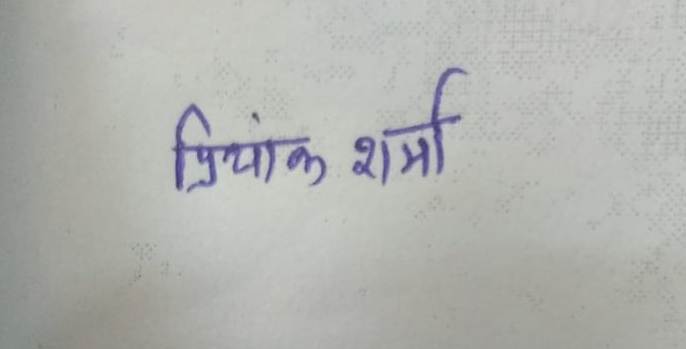 प्रियांक शर्मा